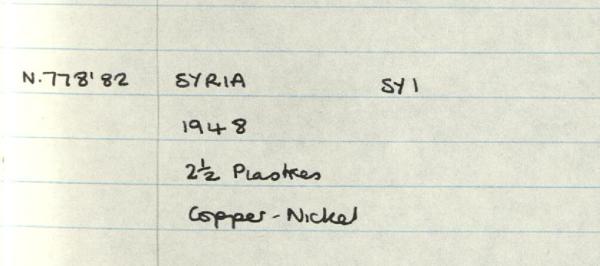 N.778'82 SYRIA SY1
1948
2½ Piastres
Copper-Nickel